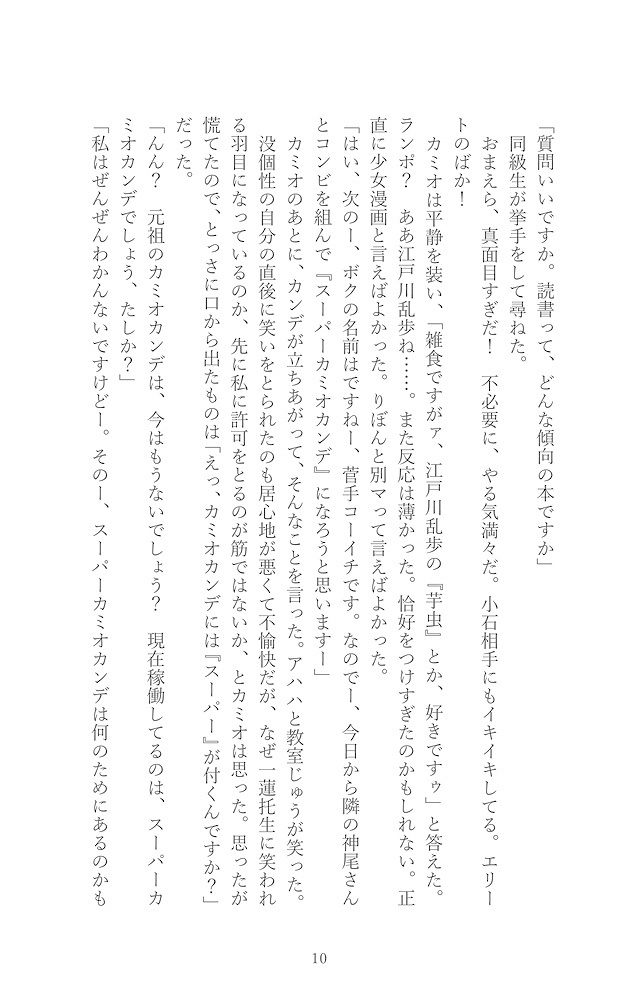 「質問いいですか。読書って、どんな傾向の本ですか」
同級生が挙手をして尋ねた。
おまえら、真面目すぎだ！　不必要に、やる気満々だ。小石相手にもイキイキしてる。エリー
トのばか！
カミオは平静を装い、「雑食ですがァ、江戸川乱歩の『芋虫』とか、好きですゥ」と答えた。
ランポ？　ああ江戸川乱歩ね……。また反応は薄かった。恰好をつけすぎたのかもしれない。正
直に少女漫画と言えばよかった。りぼんと別マって言えばよかった。
「はい、次のー、ボクの名前はですねー、菅手コーイチです。なのでー、今日から隣の神尾さん
とコンビを組んで『スーパーカミオカンデ』になろうと思いますー」
カミオのあとに、カンデが立ちあがって、そんなことを言った。アハハと教室じゅうが笑った。
没個性の自分の直後に笑いをとられたのも居心地が悪くて不愉快だが、なぜ一蓮托生に笑われ
る羽目になっているのか、先に私に許可をとるのが筋ではないか、とカミオは思った。思ったが
慌てたので、とっさに口から出たものは「えっ、カミオカンデには『スーパー』が付くんですか？」
だった。
「んん？　元祖のカミオカンデは、今はもうないでしょう？　現在稼働してるのは、スーパーカ
ミオカンデでしょう、たしか？」
「私はぜんぜんわかんないですけどー。そのー、スーパーカミオカンデは何のためにあるのかも
10